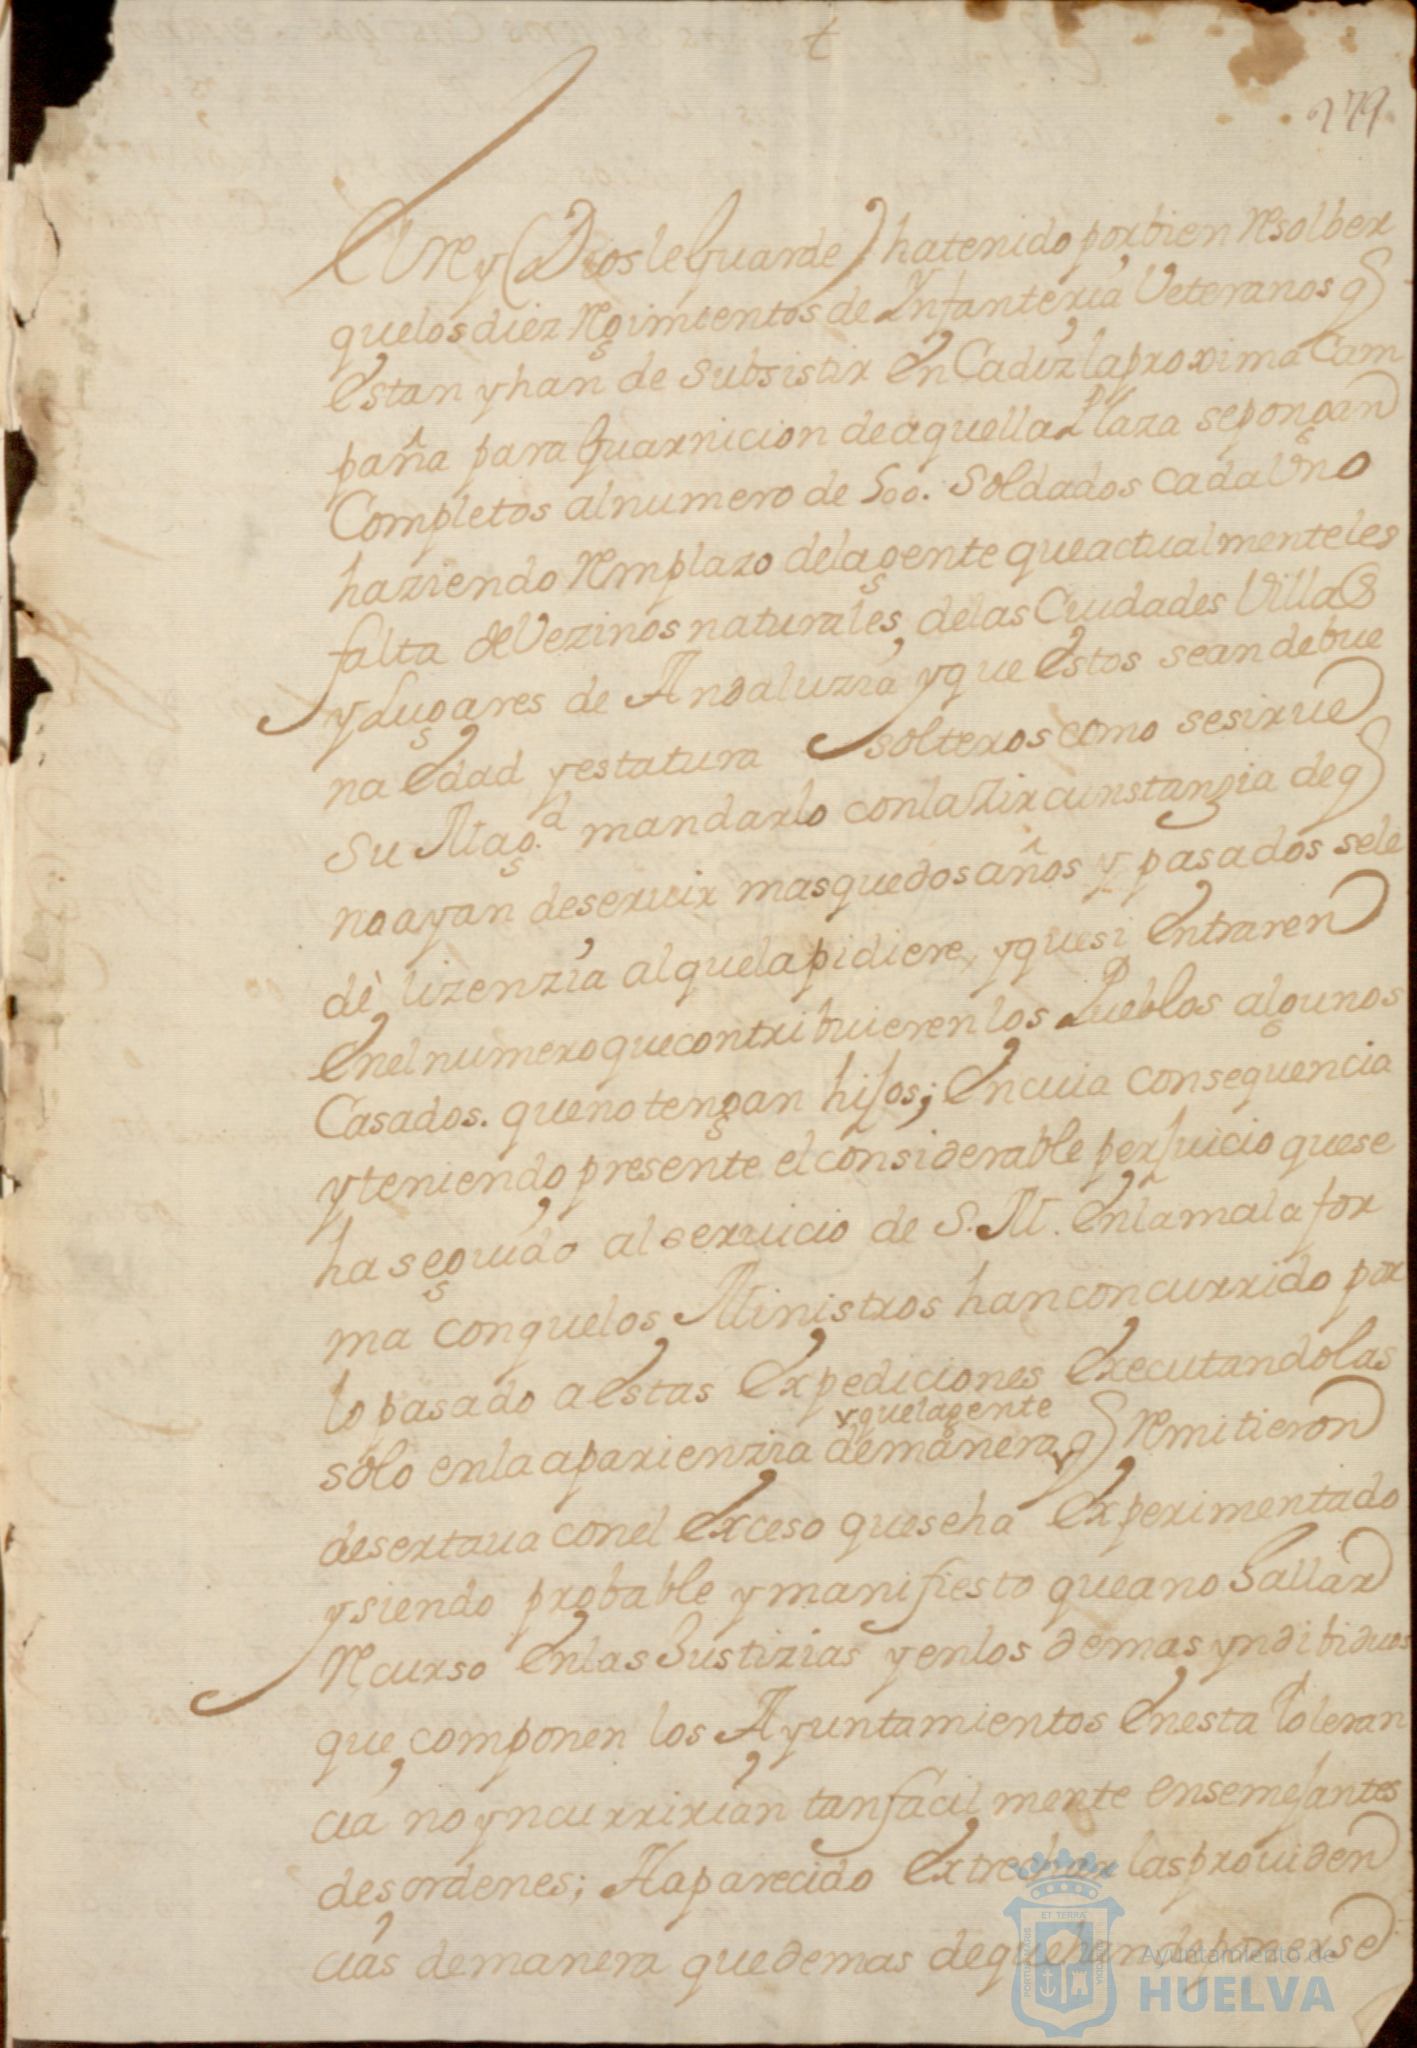 t
279
El Rey (Dios le Guarde) ha tenido por bien Resolber
que los diez Regimientos de Infanteria Veteranos q
estan y han de subsistir en Cadiz la proxima Cam
paña para Guarnicion de aquella Plaza se pongan
Completos al numero de 500. Soldados cada Vno
haziendo Remplazo de la gente que actualmente les
falta de Vezinos naturales de las Ciudades Villas
y Lugares de Andaluzia y que estos sean de bue
na edad y estatura solteros como se sirue
Su Mag.d mandarlo con la Zircunstanzia de q
no ayan de seruir mas que dos años y pasados se le
dè lizenzia al que la pidiere, y que si entraren
en el numero que contribuieren los Pueblos algunos
Casados. que no tengan hijos; en cuia consequencia
y teniendo presente el considerable perjuicio que se
ha seguido al seruicio de S. M. en la mala for
ma con que los Ministros han concurrido por
lo pasado a estas expediciones executandolas
solo en la aparienzia de manera q Remitieron
y que la gente
desertaua con el exceso que se ha experimentado
y siendo probable y manifiesto que a no hallar
Recurso en las Justizias y en los demas yndibiduos
que componen los Ayuntamientos en esta toleran
cia no yncurririan tan facilmente en semejantes
desordenes; Ha parecido extrechar las prouiden
cias de manera que demas de que han de ponerse
ET TERRA
Ayuntamiento de
HUELVA